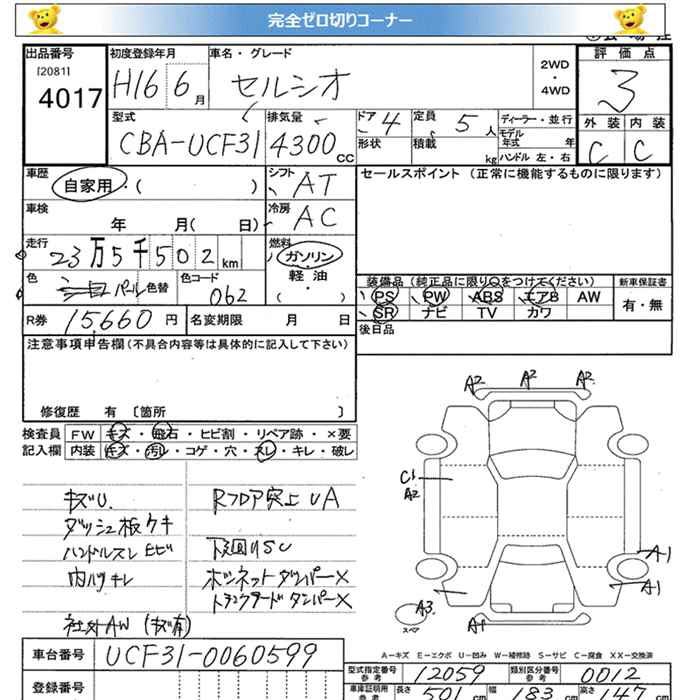 完全ゼロ切りコーナー
出品番号 初度登録年月 車名・グレード 評価点
[2081]
4017 H16 6月 セルシオ 2WD・4WD 3
型式 排気量 ドア 4 定員 5人 ディーラー・並行 外装 内装
CBA-UCF31 4300cc 形状 積載 kg モデル年式 年 C C
ハンドル 左・右
車歴 シフト AT セールスポイント (正常に機能するものに限ります)
自家用・( )
車検 冷房 AC
年 月( 日)
走行 燃料
23万5千502km ガソリン・軽油
色 パール 色替 色コード 062 ( ・ )
装備品 (純正品に限り○をつけてください) 新車保証書
PS PW ABS エアB AW 有・無
SR ナビ TV カワ
R券 15,660円 名変期限 月 日 後日品
注意事項申告欄(不具合内容等は具体的に記入して下さい)
修復歴 有 〔箇所 〕
検査員 FW キズ・飛石・ヒビ割・リペア跡・×要
記入欄 内装 キズ・汚レ・コゲ・穴・スレ・キレ・破レ
A2 A2 A2
C1
A2
キズU. Rフロア突上UA
ダッシュ板ワキ
ハンドルスレ ヒビ 下廻りSU
内ハリキレ ボンネットダンパー×
トランクフードダンパー×
社外AW (キズ有)
A1
A1
A3
スペア
A1
A-キズ E-エクボ U-凹み W-補修跡 S-サビ C-腐食 XX-交換済
車台番号 UCF31-0060599
型式指定番号 参考 12059 類別区分番号 参考 0012
登録番号 車庫証明用 参考 長さ 501cm 幅 183cm 高さ 147cm